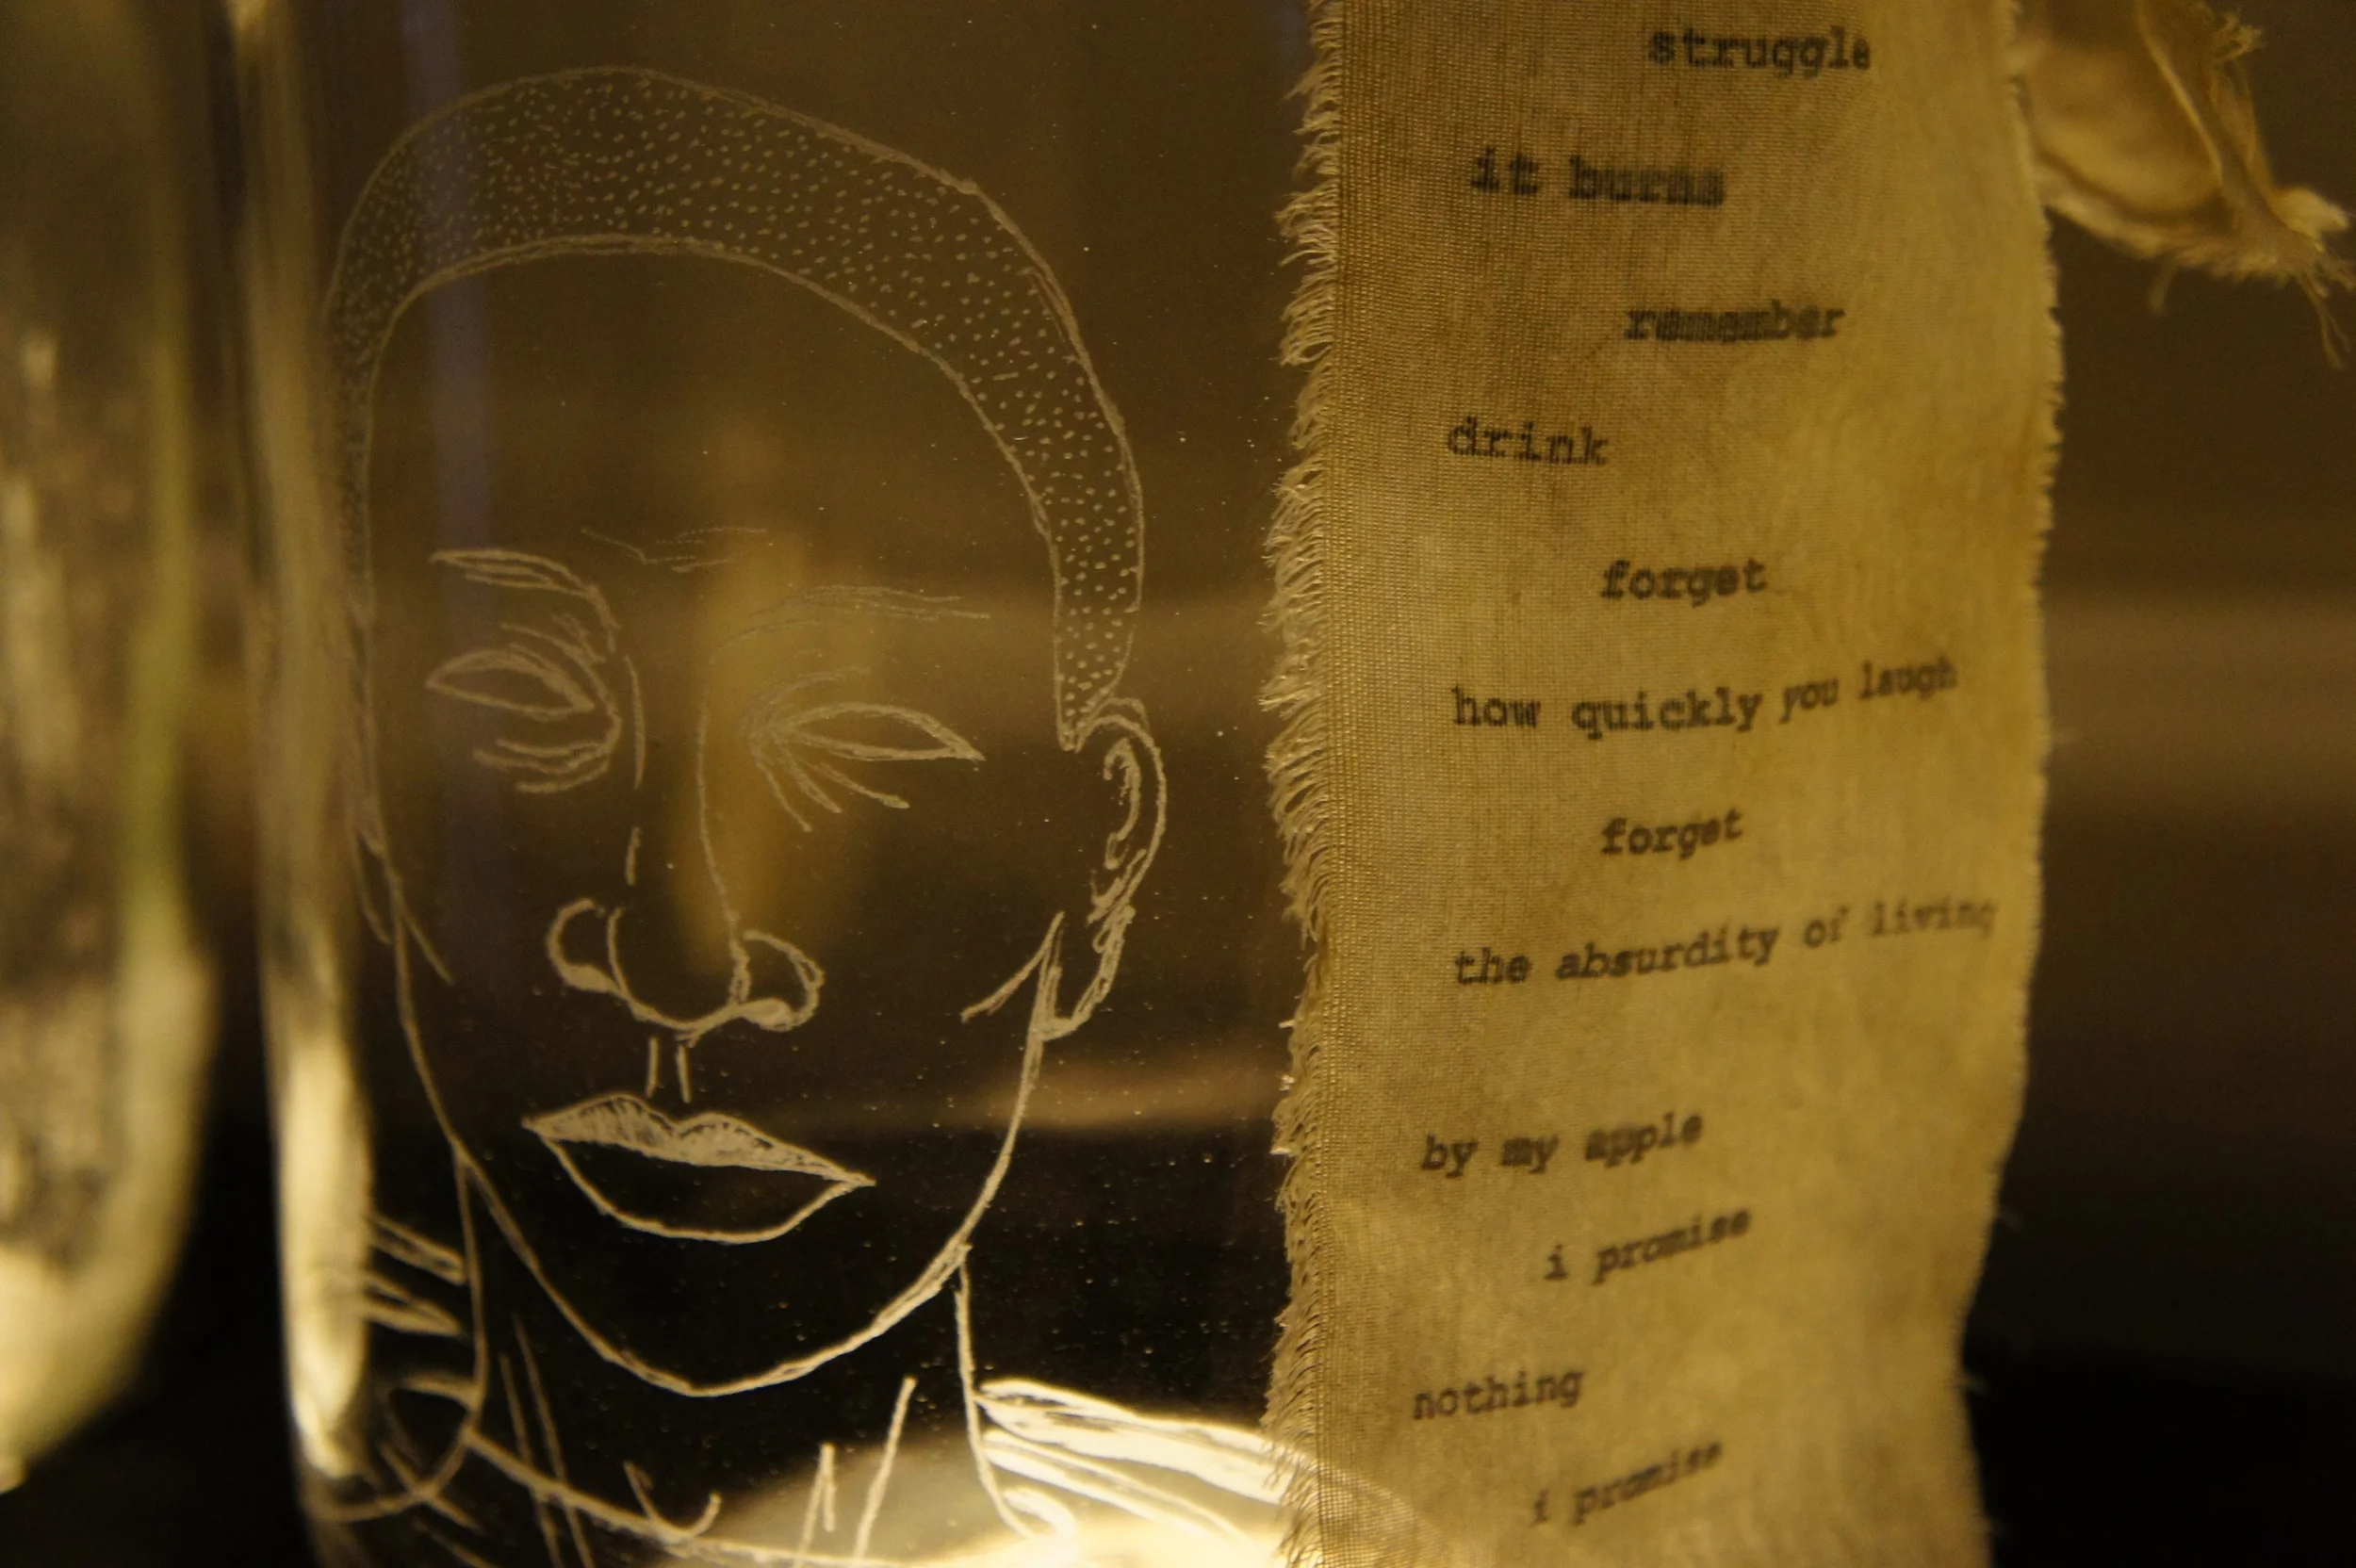 struggle
it burns
remember
drink
forget
how quickly you laugh
forget
the absurdity of living
by my apple
i promise
nothing
i promise